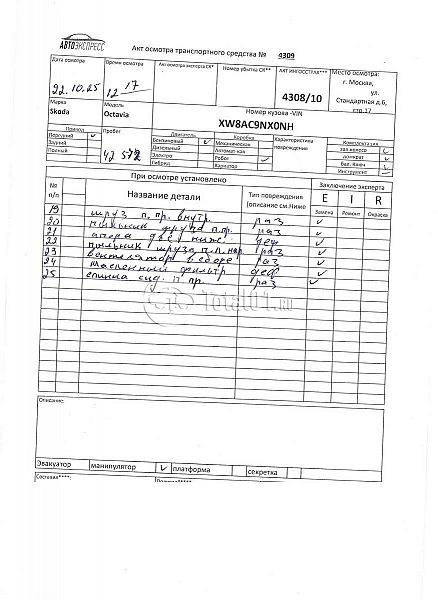 АВТОЭКСПРЕСС
Акт осмотра транспортного средства № 4309
Дата осмотра Время осмотра Акт осмотра эксперта СК* Номер убытка СК** АКТ ИНГОССТРАХ*** Место осмотра:
г. Москва,
ул.
Стандартная д.6,
стр.17
22.10.25 12 17 4308/10
Марка Модель Номер кузова -VIN
Skoda Octavia XW8AC9NX0NH
Привод Пробег Двигатель Коробка Характеристика повреждения Комплектация
Передний Бензиновый Механическая зап.колесо
Задний Дизельный Автоматная домкрат
Полный 42 572 Электро Робот бал. Ключ
Гибрид Вариатор Инструмент
При осмотре установлено
№ п/п Название детали Тип повреждения (описание см.Ниже Заключение эксперта
E I R
Замена Ремонт Окраска
19 шруз п. пр. внутр. раз
20 пыльник шруза п.пр. раз
21 опора двс ниж. деф
22 пыльник шруза п.л. нар. раз
23 вентилятор в сборе раз
24 масленный фильтр деф
25 спинка сид. п пр. раз
Total01.ru
Описание:
Эвакуатор манипулятор платформа секретка
Составил****: